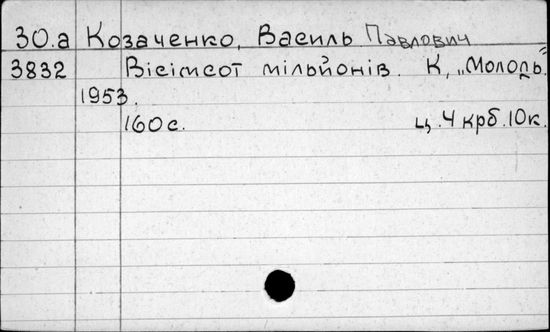 30.а Козаченко, Василь Павлович
3832 Вісімсот мільйонів. К, „Молодь".
1953.
160с. ц. 4 крб. 10к.